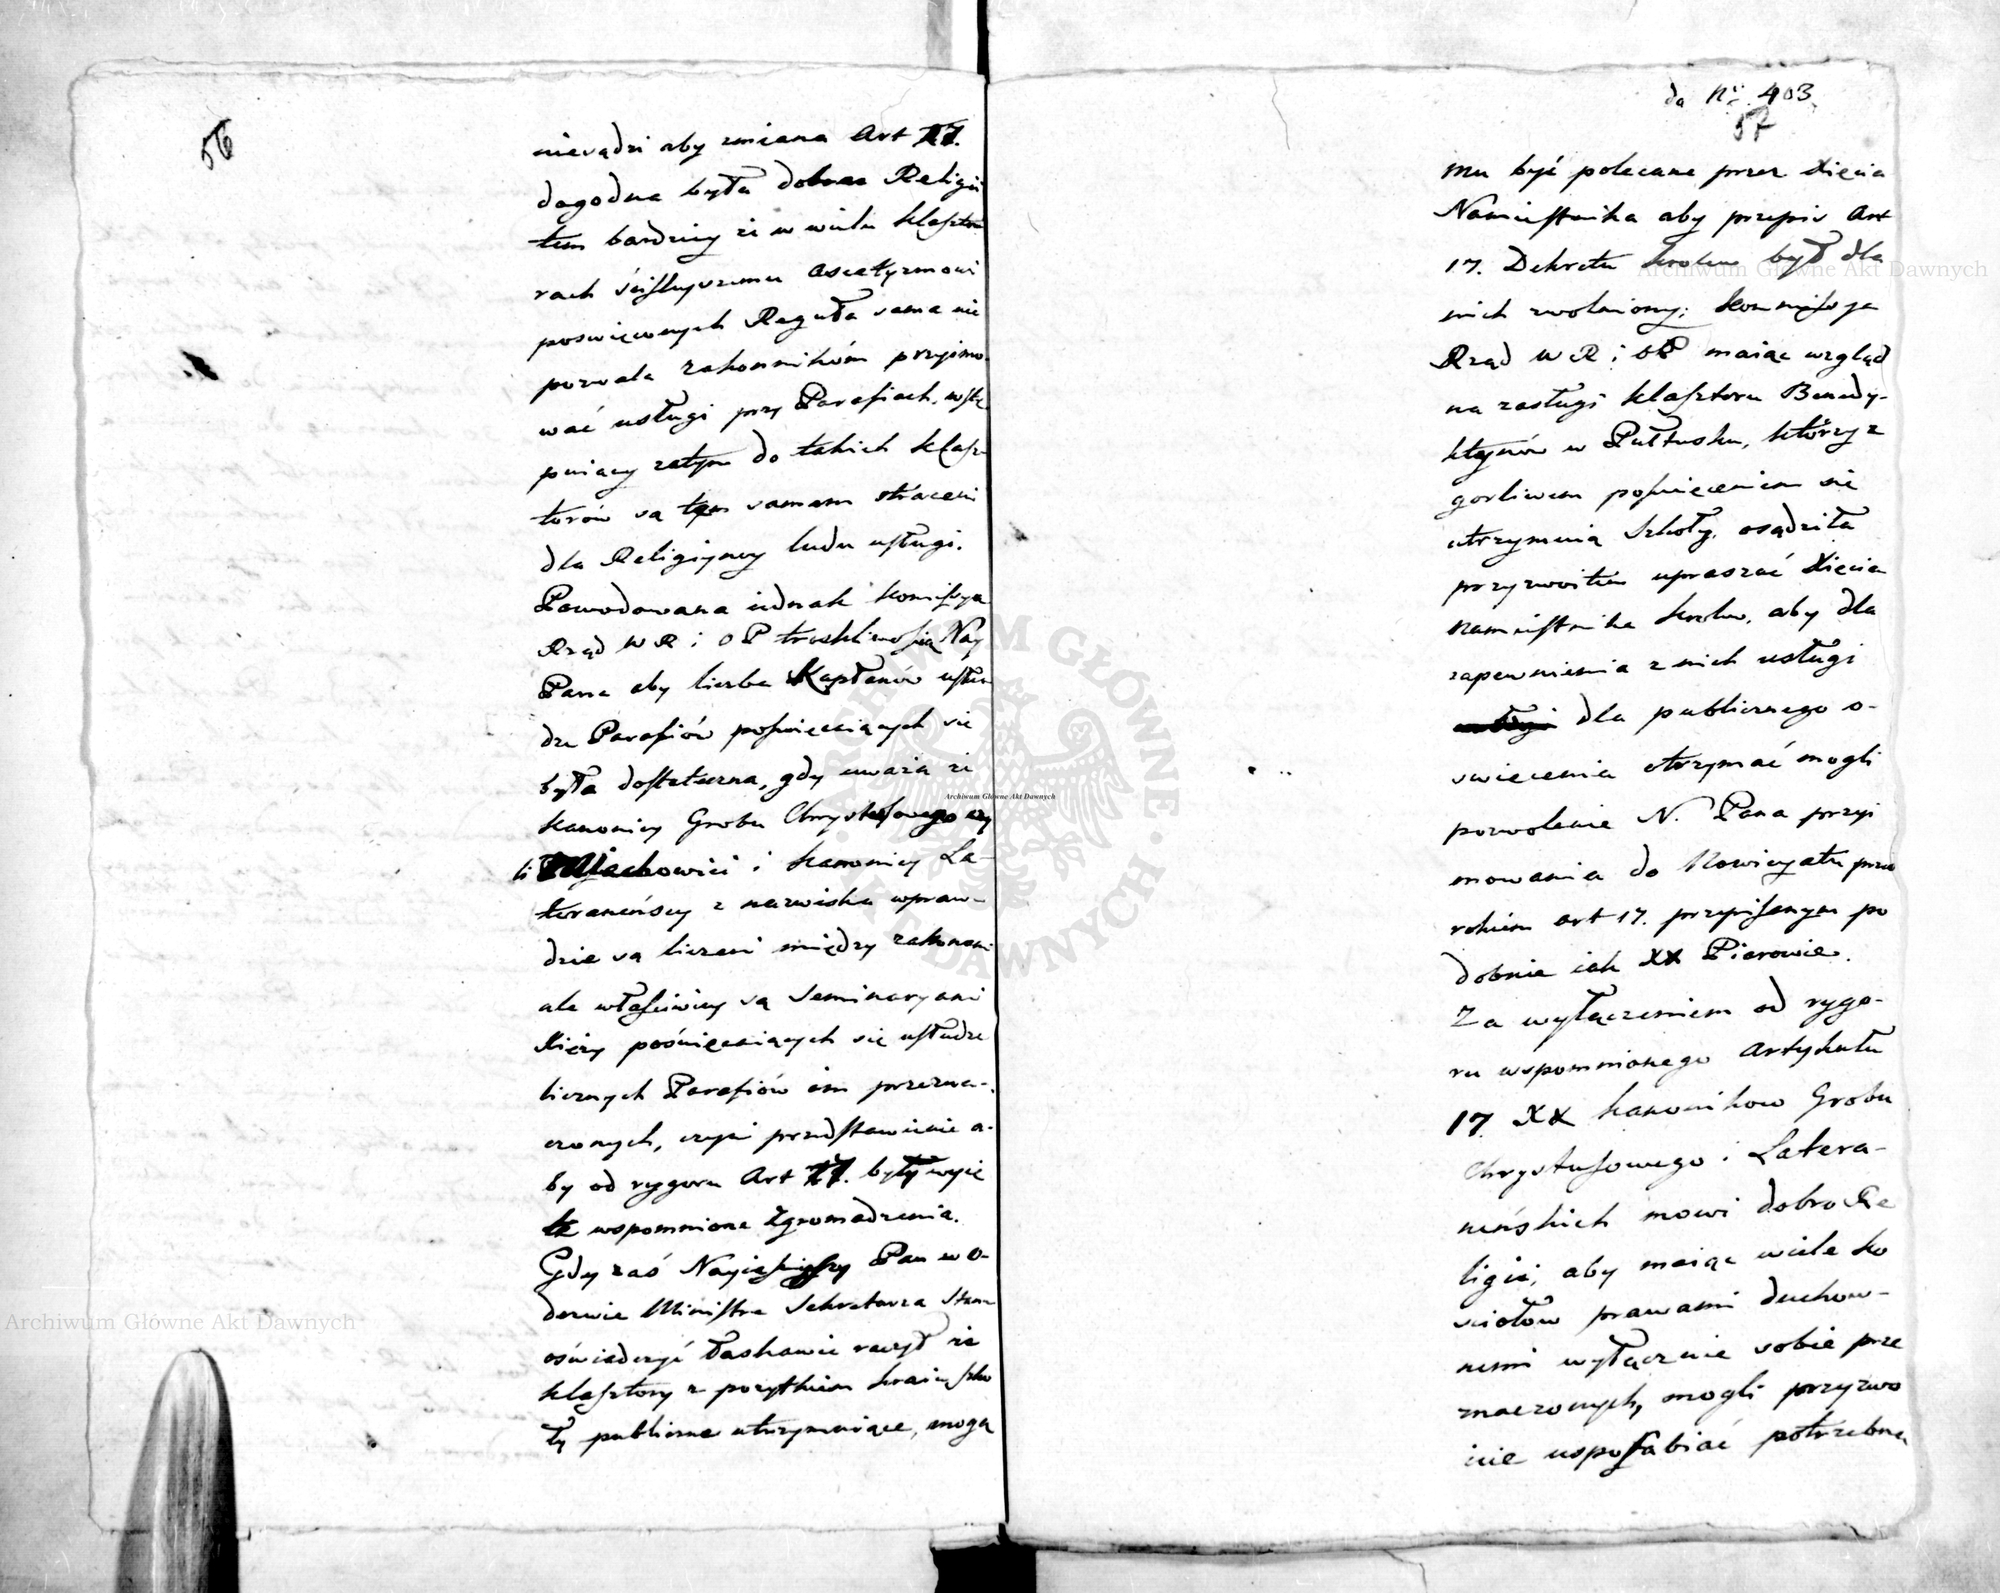 56
niesądzi aby zmiana Art 17.
dogodna była dobru Religii
tem bardziey że w wielu klaszto
rach ściśleyszemu ascetyzmowi
poswięconych Reguła sama nie
pozwala zakonnikóm przyimo
wać usługi przy Parafiach, wstę
puiący zatym do takich klasz
torów są tem samem straceni
dla Religiyney ludu usługi.
Powodowana iednak Kommissya
Rząd W R i O P troskliwością Nay
Pana aby liczba Kapłanów usłu
dze Parafiów poswięcaiących się
była dostateczna, gdy uważa że
Kanonicy Grobu Chrystusowego czy
li Miechowici i Kanonicy La-
teraneńscy z nazwiska wpraw-
dzie są liczeni między zakonami
ale właściwiey są Seminaryami
Xięży poświęcaiących się usłudze
licznych Parafiów im przezna-
czonych, czyni przedstawienie a-
by od rygoru Art 17. były wyię
te wspomnione zgromadzenia.
Gdy zaś Nayiaśnieyszy Pan w O-
dezwie Ministra Sekretarza Stanu
oświadczyć łaskawie raczył że
klasztory z pożytkiem kraiu szko
ły publiczne utrzymuiące, mogą
do Nr 403
57
mu być polecane przez Xięcia
Namiestnika aby przepis Art
17. Dekretu Królew był dla
nich zwolniony; Kommissya
Rząd W R i O P maiąc wzgląd
na zasługi klasztoru Benedy-
ktynów w Pułtusku, którzy z
gorliwem poswięceniem się
utrzymuią Szkoły, osądziła
przyzwoitem upraszać Xięcia
Namiestnika Królew, aby dla
zapewnienia z nich usługi
dla publicznego o-
swiecenia otrzymać mogli
pozwolenie N. Pana przyi
mowania do Nowicyatu przed
rokiem art 17. przepisanym po
dobnie iak XX Pierowie.
Za wyłączeniem od rygo-
ru wspomnionego Artykułu
17 XX Kanonikow Grobu
Chrystusowego i Latera-
neńskich mowi dobro Re
ligii, aby maiąc wiele ko
sciołów prawami duchow-
nemi wyłącznie sobie prze
znaczonych, mogli przyzwo
icie usposabiać potrzebną
Archiwum Główne Akt Dawnych
Archiwum Główne Akt Dawnych
Archiwum Główne Akt Dawnych
ARCHIWUM GŁÓWNE AKT DAWNYCH